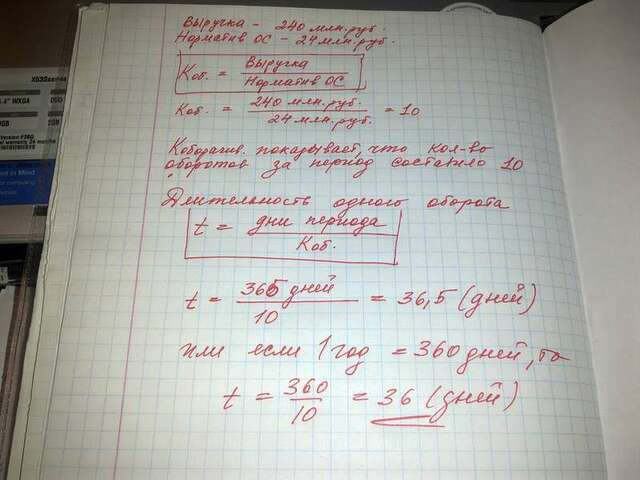 Выручка - 240 млн.руб.
Норматив ОС - 24 млн.руб.
Коб. = Выручка / Норматив ОС
Коб. = 240 млн.руб. / 24 млн.руб. = 10
показывает, что кол-во
оборотов за период составило 10
Длительность одного оборота
t = дни периода / Коб.
t = 365 дней / 10 = 36,5 (дней)
или если 1 год = 360 дней, то
t = 360 / 10 = 36 (дней)
X53Series
.4" WXGA